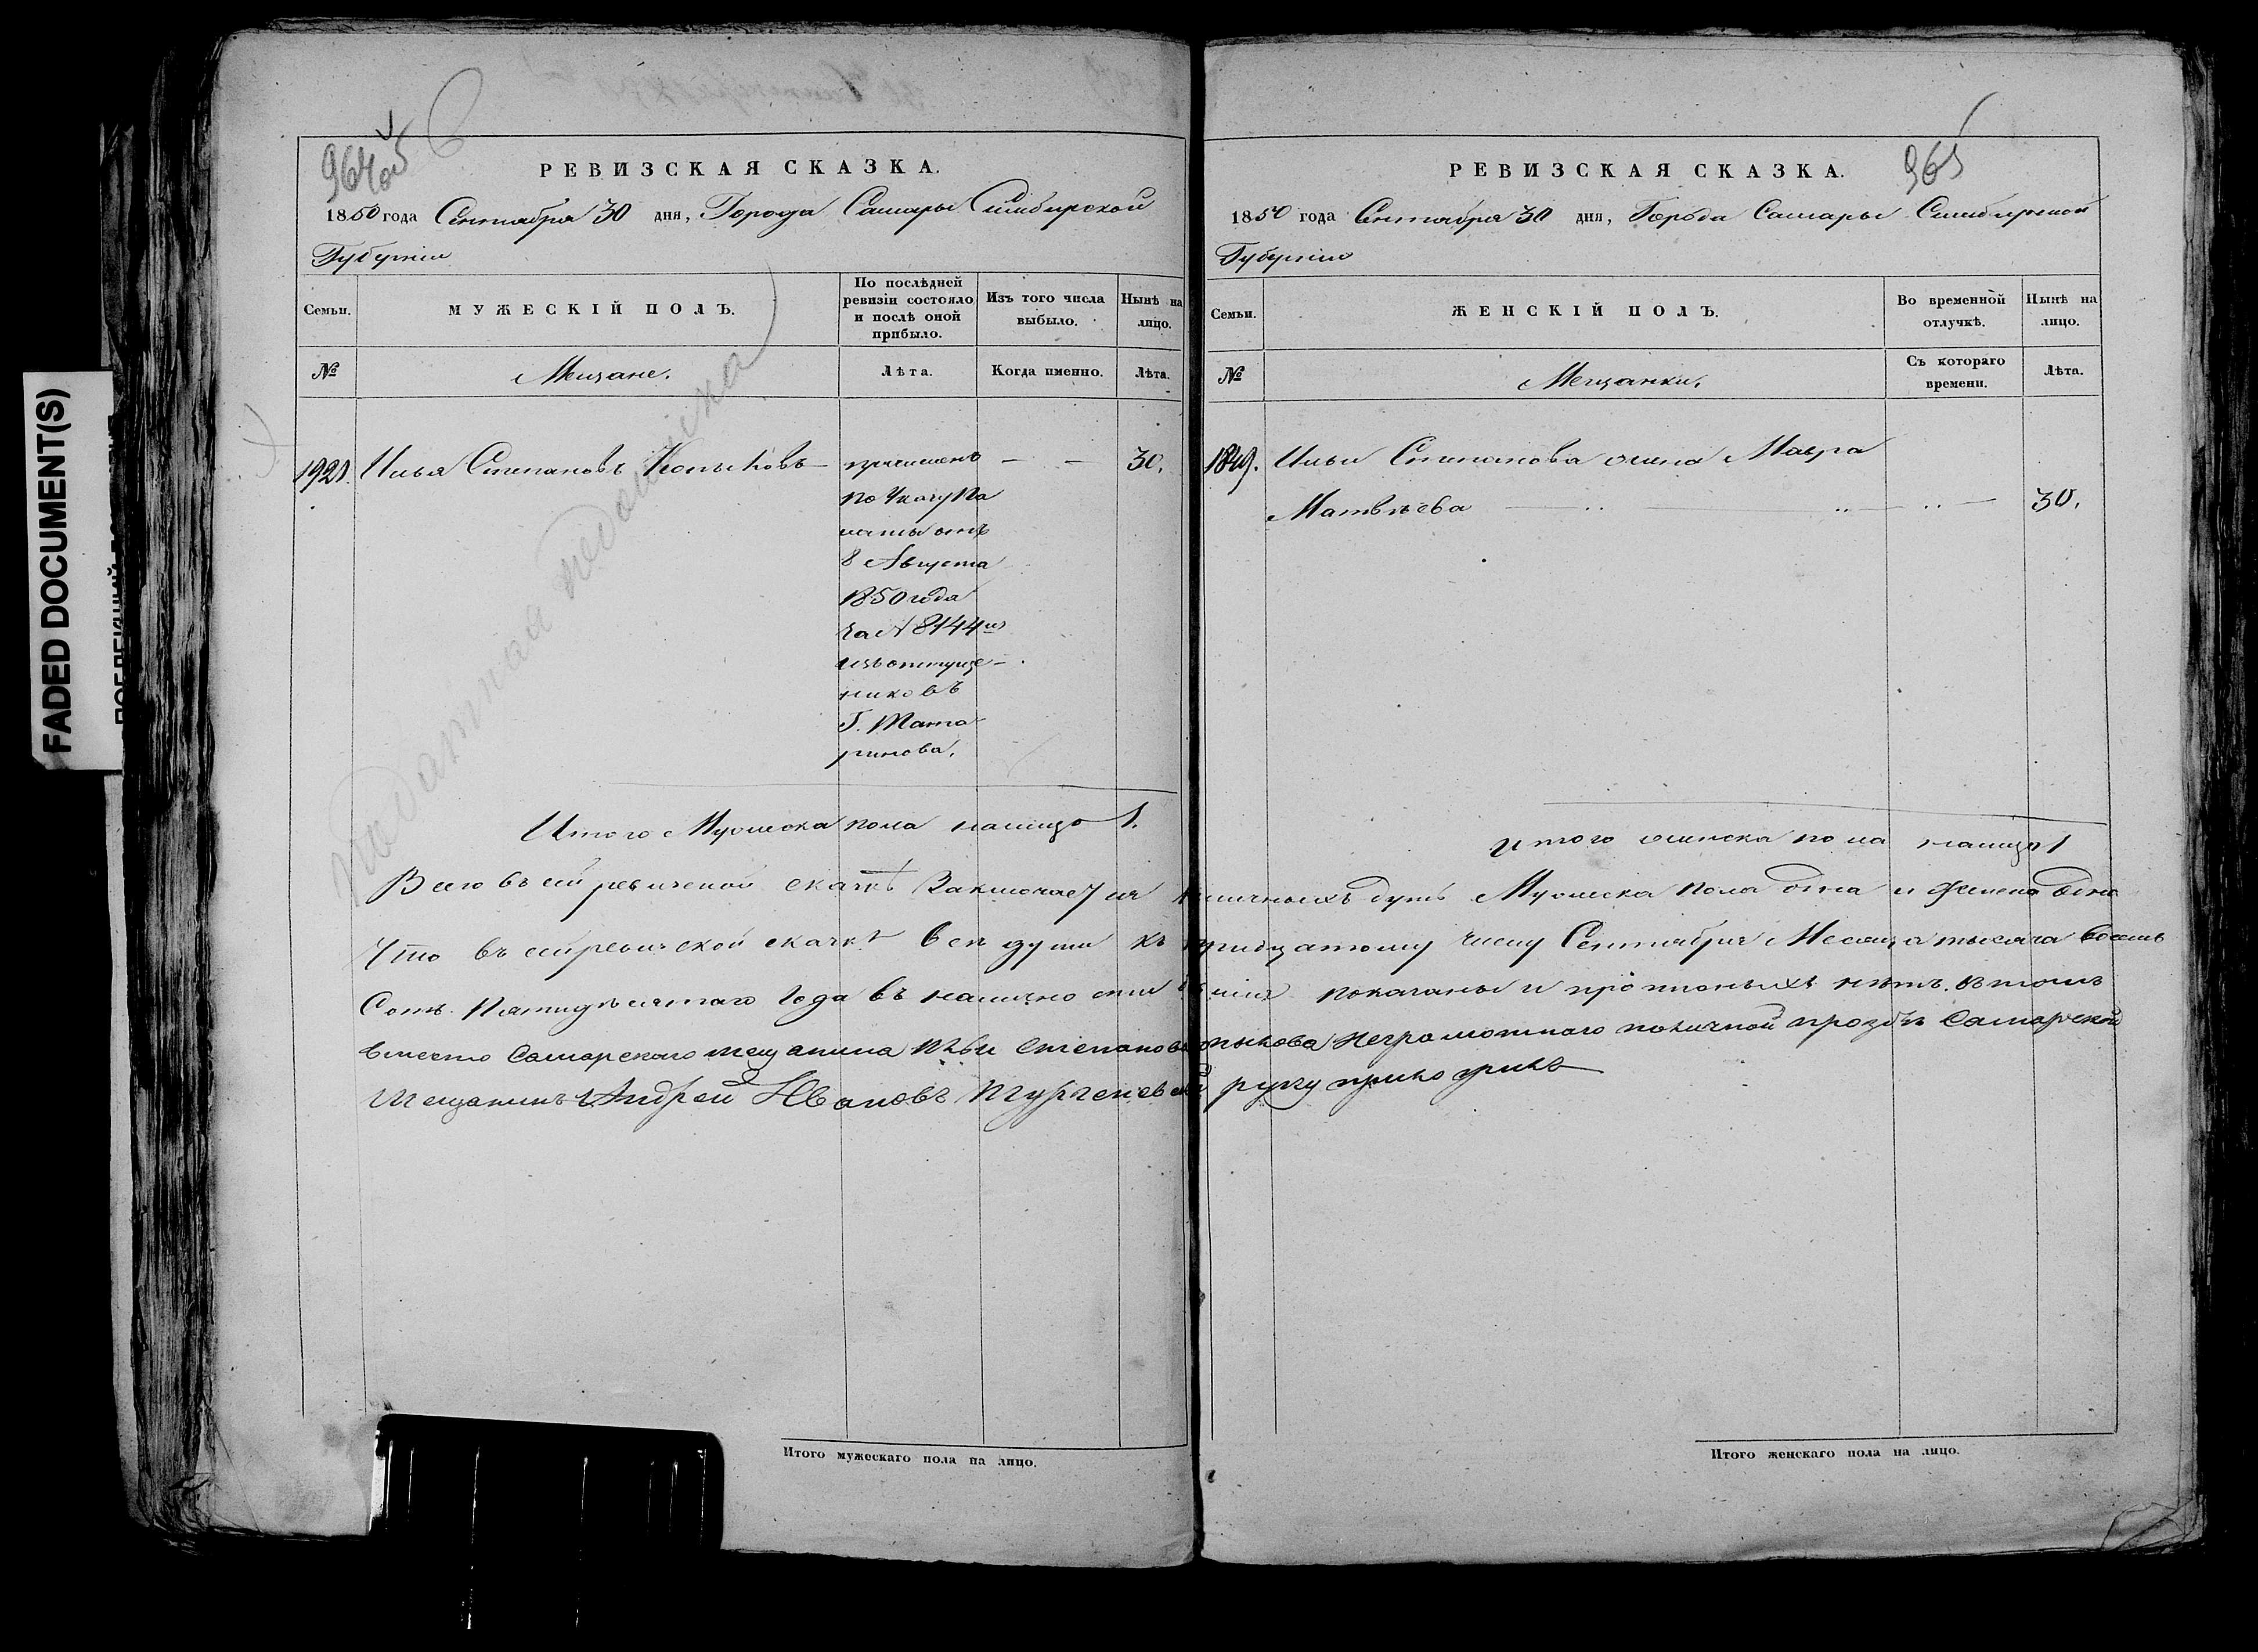 FADED DOCUMENT(S)
РЕВИЗСКАЯ СКАЗКА.
1850 года Сентября 30 дня, Города Самары Симбирской
Губернiи
Семьи.
МУЖЕСКІЙ ПОЛЪ.
По послѣдней ревизіи состояло и послѣ оной прибыло.
Изъ того числа выбыло.
Нынѣ на лицо.
№
Мещане.
Лѣта.
Когда именно.
Лѣта.
1920. Илья Степановъ Копыковъ — причисленъ — — 30.
по Указу Па
латы отъ
8 Августа
1850 года
за № 8144
изъ отпуще-
никовъ
Г. Тата
ринова.
Податная недоимка
Итого Мужеска пола налицо 1.
965
РЕВИЗСКАЯ СКАЗКА.
1850 года Сентября 30 дня, Города Самары Симбирской
Губернiи
Семьи.
ЖЕНСКІЙ ПОЛЪ.
Во временной отлучкѣ.
Нынѣ на лицо.
№
Мещанки.
Съ котораго времени.
Лѣта.
Ильи Степанова жена Мавра
Матвѣева 30.
Итого женска пола налицо 1
Всего въ сей ревизской сказкѣ Заключается наличныхъ душъ Мужеска Пола одна и Женска одна
Что въ сей ревизской сказкѣ все души къ тридцатому числу Сентября Месяца тысяча восемь
Сотъ Пятидесятаго Года въ наличности показаны и прописныхъ нѣтъ. въ томъ
вместо Самарскаго мещанина Ильи Степанова Копыкова неграмотнаго поличной прозбѣ Самарской
Мещанинъ Андрей Ивановъ руку приложилъ
Итого мужескаго пола на лицо.
Итого женскаго пола на лицо.